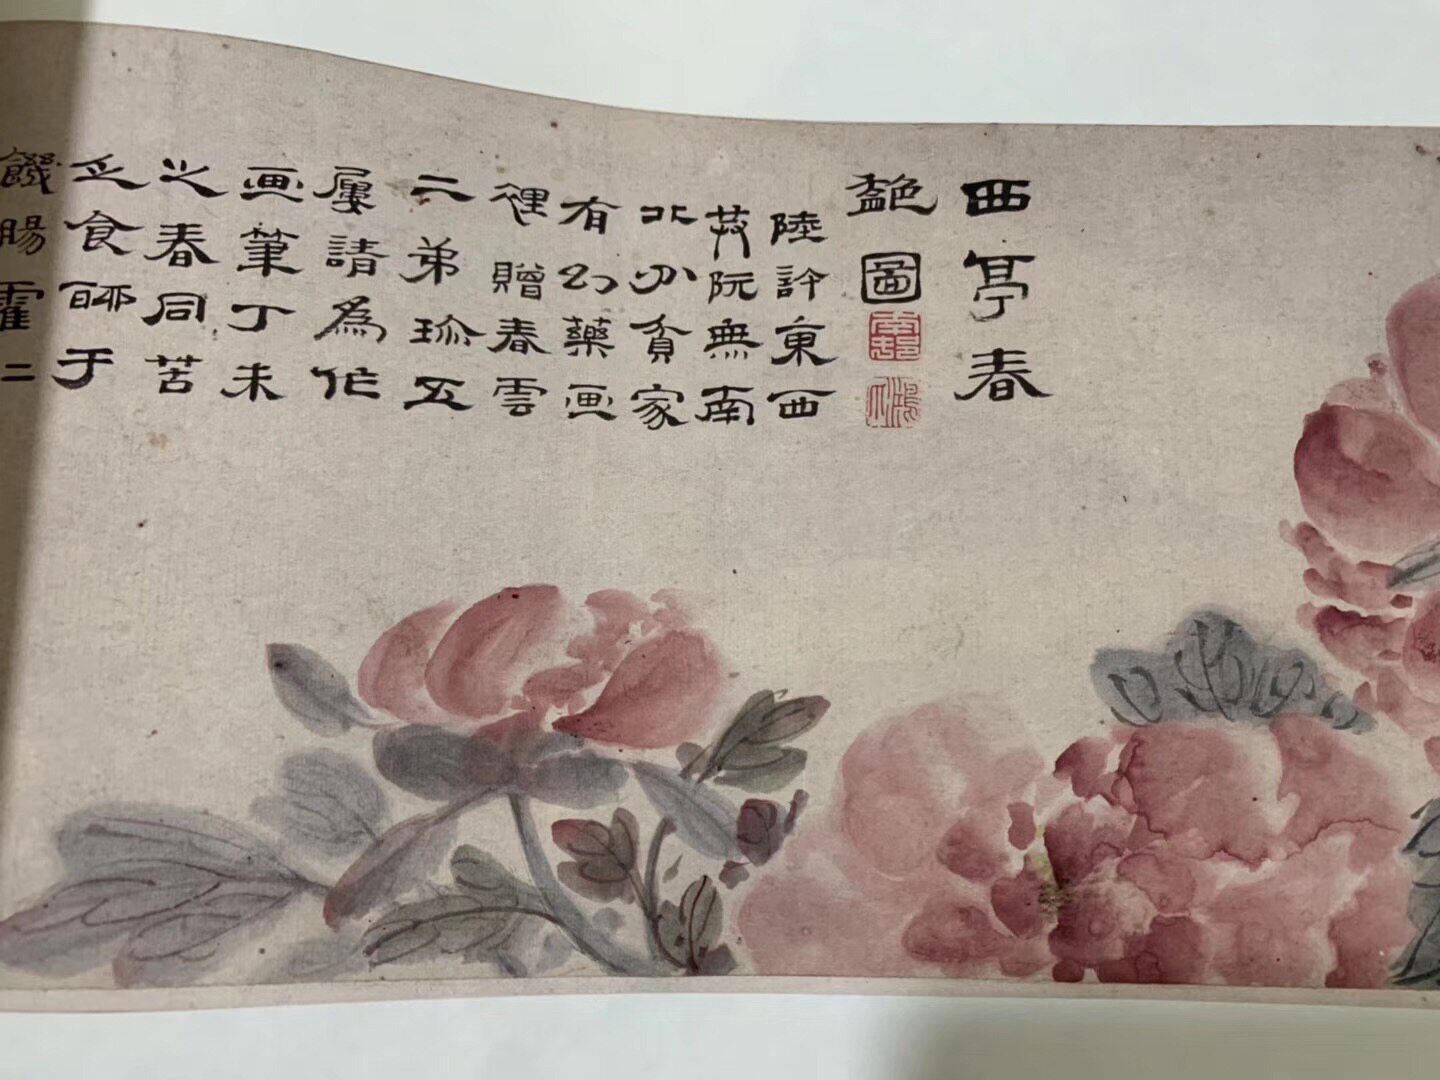 西亭春
艷圖
陸許東西
阮無南
北分貧家
有幻藥画
裡贈春雲
二弟珍五
屢請為作
画筆丁未
之春同苦
乏食于
饑腸霍二